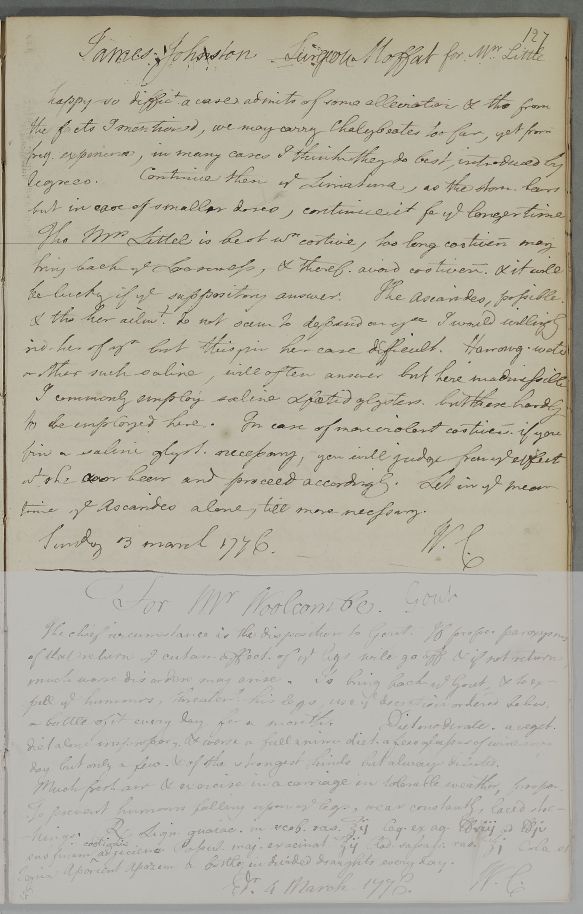 127
James Johnston Surgeon Moffat for Mrs Little
happy so diffict a case admits of some alleviation & tho from
the facts I mentioned, we may carry Chalybeates too far, yet from
freq. experience, in many cases I think they do best, introduced by
degrees. Continue then ye Limatura, as the stom. bears
but in case of smaller doses, continue it for ye longer time
Tho Mrs Littel is best wn costive, too long costiven. may
bring back ye Looseness, & theref. avoid costiven. & it will
be lucky if ye suppository answer. The Ascarides, possible.
& tho her ailmt. do not seem to depend on ym I would willingly
rid her of ym but this in her case difficult. Harrowg. water
or other such saline, will often answer but here inadmissible
I commonly employ saline & foetid glysters. but these hardly
to be employed here. In case of more violent costiven. if you
find a saline glyst. necessary, you will judge from ye effect
wt she can bear and proceed accordingly. Let in ye mean
time ye Ascarides alone, till more necessary.
Sunday 3 march 1776. W. C.
For Mr Woolcombe. Gout
The chief circumstance is the disposition to Gout. If proper paroxysms
of that return, a certain affect. of ye legs will go off & if not return,
much worse disorders may arise. To bring back ye Gout, & to ex-
pell ye humours, threateng. his legs, use ye decoction ordered below,
a bottle of it every day for a month. Diet moderate. a veget.
diet alone improper, & worse a full animal diet. a few glasses of wine every
day but only a few & of the strongest kinds but always diluted.
Much fresh air & exercise in a carriage in tolerable weather, proper.
To prevent humours falling upon ye legs, wear constantly laced stoc-
kings. Rx Lign. guaiac.
& bottle in divided draughts every day.
Dr. 4 March 1776. W. C.